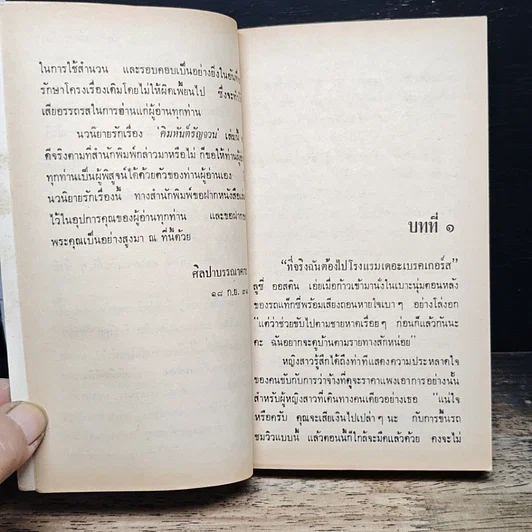 ในการใช้สำนวน และรอบคอบเป็นอย่างยิ่งในอันที่จะ
รักษาโครงเรื่องเดิมโดยไม่ให้ผิดเพี้ยนไป ซึ่งจะทำให้
เสียอรรถรสในการอ่านแก่ผู้อ่านทุกท่าน
นวนิยายรักเรื่อง ‘คิมหันต์รัญจวน’ เล่มนี้
ดีจริงตามที่สำนักพิมพ์กล่าวมาหรือไม่ ก็ขอให้ท่านผู้อ่าน
ทุกท่านเป็นผู้พิสูจน์ได้ด้วยตัวของท่านผู้อ่านเอง
นวนิยายรักเรื่องนี้ ทางสำนักพิมพ์ขอฝากหนังสือ
ไว้ในอุปการคุณของผู้อ่านทุกท่าน และขอ
พระคุณเป็นอย่างสูงมา ณ ที่นี้ด้วย
ศิลปาบรรณาคาร
๑๘ ก.ย.
บทที่ ๑
“ที่จริงฉันต้องไปโรงแรมเดอะเบรคเกอร์ส”
ลูซี่ ออสติน เอ่ยเมื่อก้าวเข้ามานั่งในเบาะนุ่มตอนหลัง
ของรถแท็กซี่พร้อมเสียงถอนหายใจเบาๆ อย่างโล่งอก
“แต่ว่าช่วยขับไปตามชายหาดเรื่อยๆ ก่อนก็แล้วกันนะ
คะ ฉันอยากจะดูบ้านตามรายทางสักหน่อย”
หญิงสาวรู้สึกได้ถึงท่าทีแสดงความประหลาดใจ
ของคนขับกับการว่าจ้างที่ดูจะราคาแพงเอาการอย่างนั้น
สำหรับผู้หญิงสาวที่เดินทางคนเดียวอย่างเธอ “แน่ใจ
หรือครับ คุณจะเสียเงินไปเปล่าๆ นะ กับการขึ้นรถ
ชมวิวแบบนี้ แล้วตอนนี้ก็ใกล้จะมืดแล้วด้วย คงจะไม่